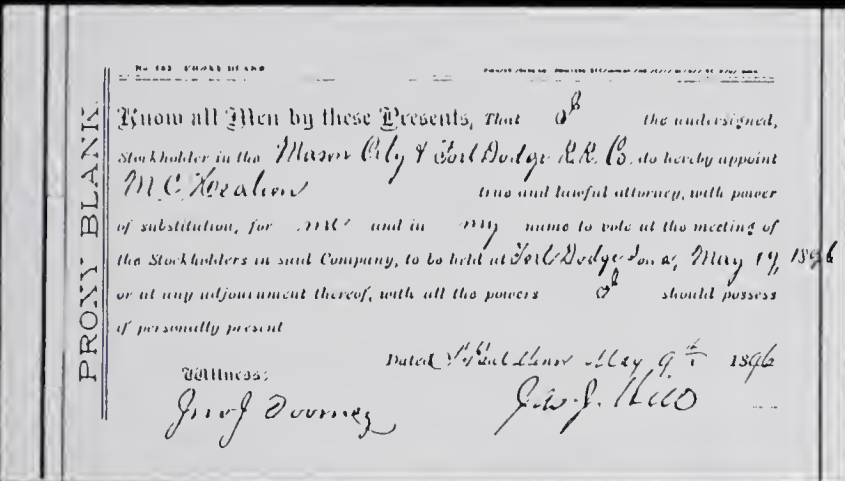 PROXY BLANK.
No. 182 PROXY BLANK
Know all Men by these Presents, That I the undersigned,
Stockholder in the Mason City & Fort Dodge R.R. Co. do hereby appoint
M. C. Healion true and lawful attorney, with power
of substitution, for me and in my name to vote at the meeting of
the Stockholders in said Company, to be held at Fort Dodge Iowa, May 19, 1896
or at any adjournment thereof, with all the powers I should possess
if personally present
Dated St Paul Minn May 9th 1896
Witness:
Jno J Toomey Jas. J. Hill